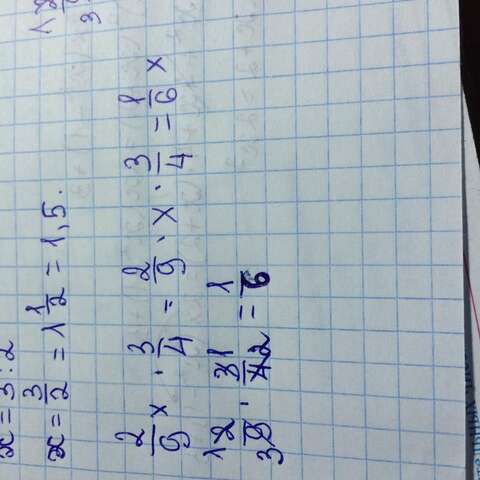 x = 3 : 2
x = 3/2 = 1 1/2 = 1,5.
2/9 x · 3/4 = 2/9 · x · 3/4 = 1/6 x
1 2/9 3 · 3 1/4 2 = 1/6